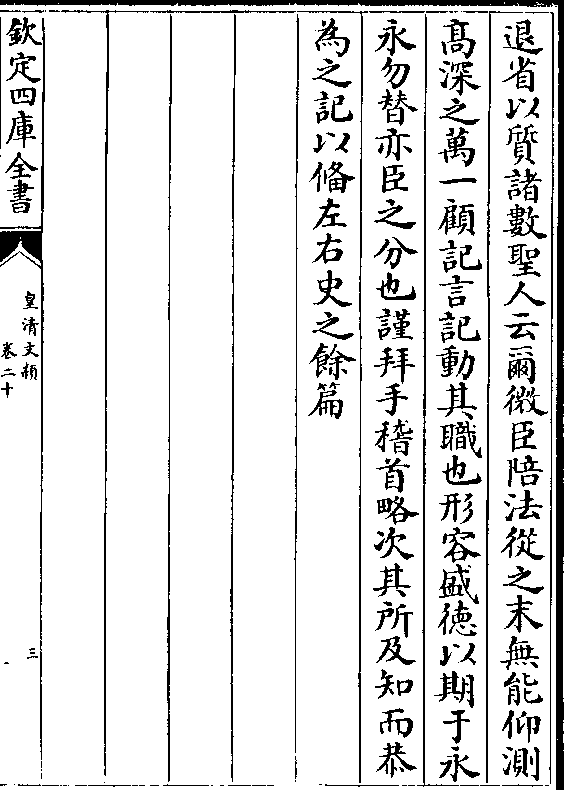 退省以質諸數聖人云爾微臣陪法從之末無能仰測
髙深之萬一顧記言記動其職也形容盛徳以期于永
永勿替亦臣之分也謹拜手稽首略次其所及知而恭
為之記以備左右史之餘篇
欽定四庫全書
皇清文頴
卷二十
三